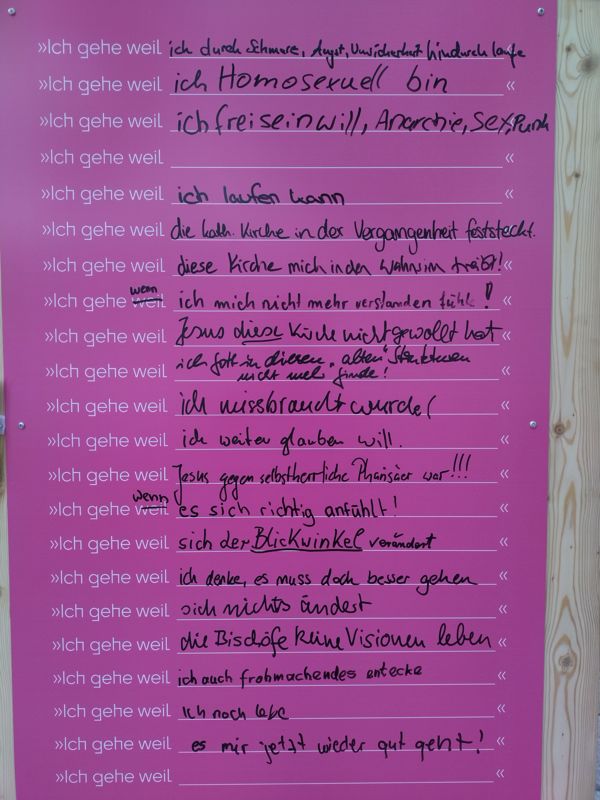 »Ich gehe weil ich durch Schmerz, Angst, Unsicherheit hindurch laufe
»Ich gehe weil ich Homosexuell bin «
»Ich gehe weil ich frei sein will, Anarchie, Sex, Punk «
»Ich gehe weil «
»Ich gehe weil ich laufen kann «
»Ich gehe weil die kath. Kirche in der Vergangenheit feststeckt. «
»Ich gehe weil diese Kirche mich in den Wahnsinn treibt! «
wenn
»Ich gehe weil ich mich nicht mehr verstanden fühle! «
»Ich gehe weil Jesus diese Kirche nicht gewollt hat «
»Ich gehe weil ich Gott in diesen "alten" Strukturen
nicht mehr finde! «
»Ich gehe weil ich missbraucht wurde( «
»Ich gehe weil ich weiter glauben will. «
»Ich gehe weil Jesus gegen selbstherrliche Pharisäer war!!! «
wenn
»Ich gehe weil es sich richtig anfühlt! «
»Ich gehe weil sich der Blickwinkel verändert «
»Ich gehe weil ich denke, es muss doch besser gehen «
»Ich gehe weil sich nichts ändest «
»Ich gehe weil die Bischöfe keine Visionen leben «
»Ich gehe weil ich auch frohmachendes entecke «
»Ich gehe weil ich noch lebe «
»Ich gehe weil es mir jetzt wieder gut geht! «
»Ich gehe weil «